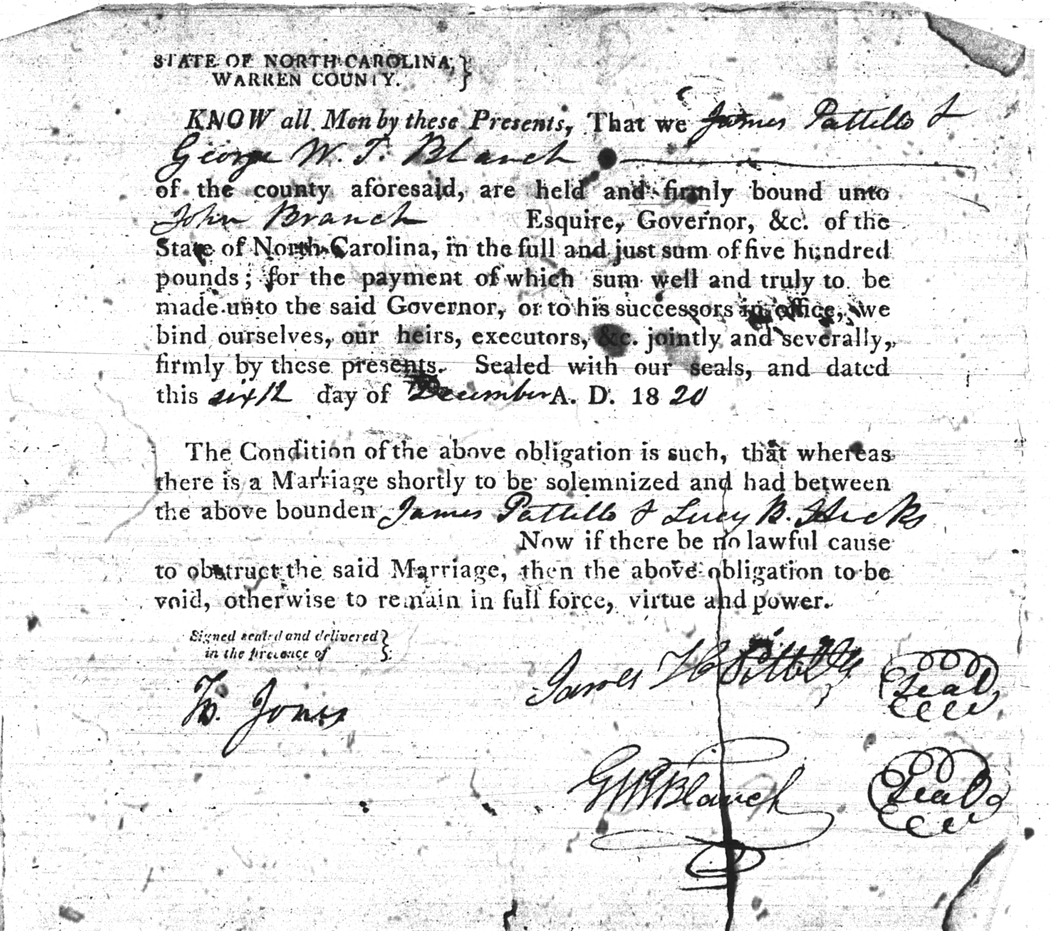 STATE OF NORTH-CAROLINA, }
WARREN COUNTY. }
KNOW all Men by these Presents, That we James Pattillo &
George W. T. Blanch
of the county aforesaid, are held and firmly bound unto
John Branch Esquire, Governor, &c. of the
State of North-Carolina, in the full and just sum of five hundred
pounds; for the payment of which sum well and truly to be
made unto the said Governor, or to his successors in office, we
bind ourselves, our heirs, executors, &c. jointly and severally,
firmly by these presents. Sealed with our seals, and dated
this sixth day of December A. D. 1820
The Condition of the above obligation is such, that whereas
there is a Marriage shortly to be solemnized and had between
the above bounden James Pattillo & Lucy B. Hicks
Now if there be no lawful cause
to obstruct the said Marriage, then the above obligation to be
void, otherwise to remain in full force, virtue and power.
Signed sealed and delivered }
in the presence of }
James H Seal
Jones
Blanch Seal